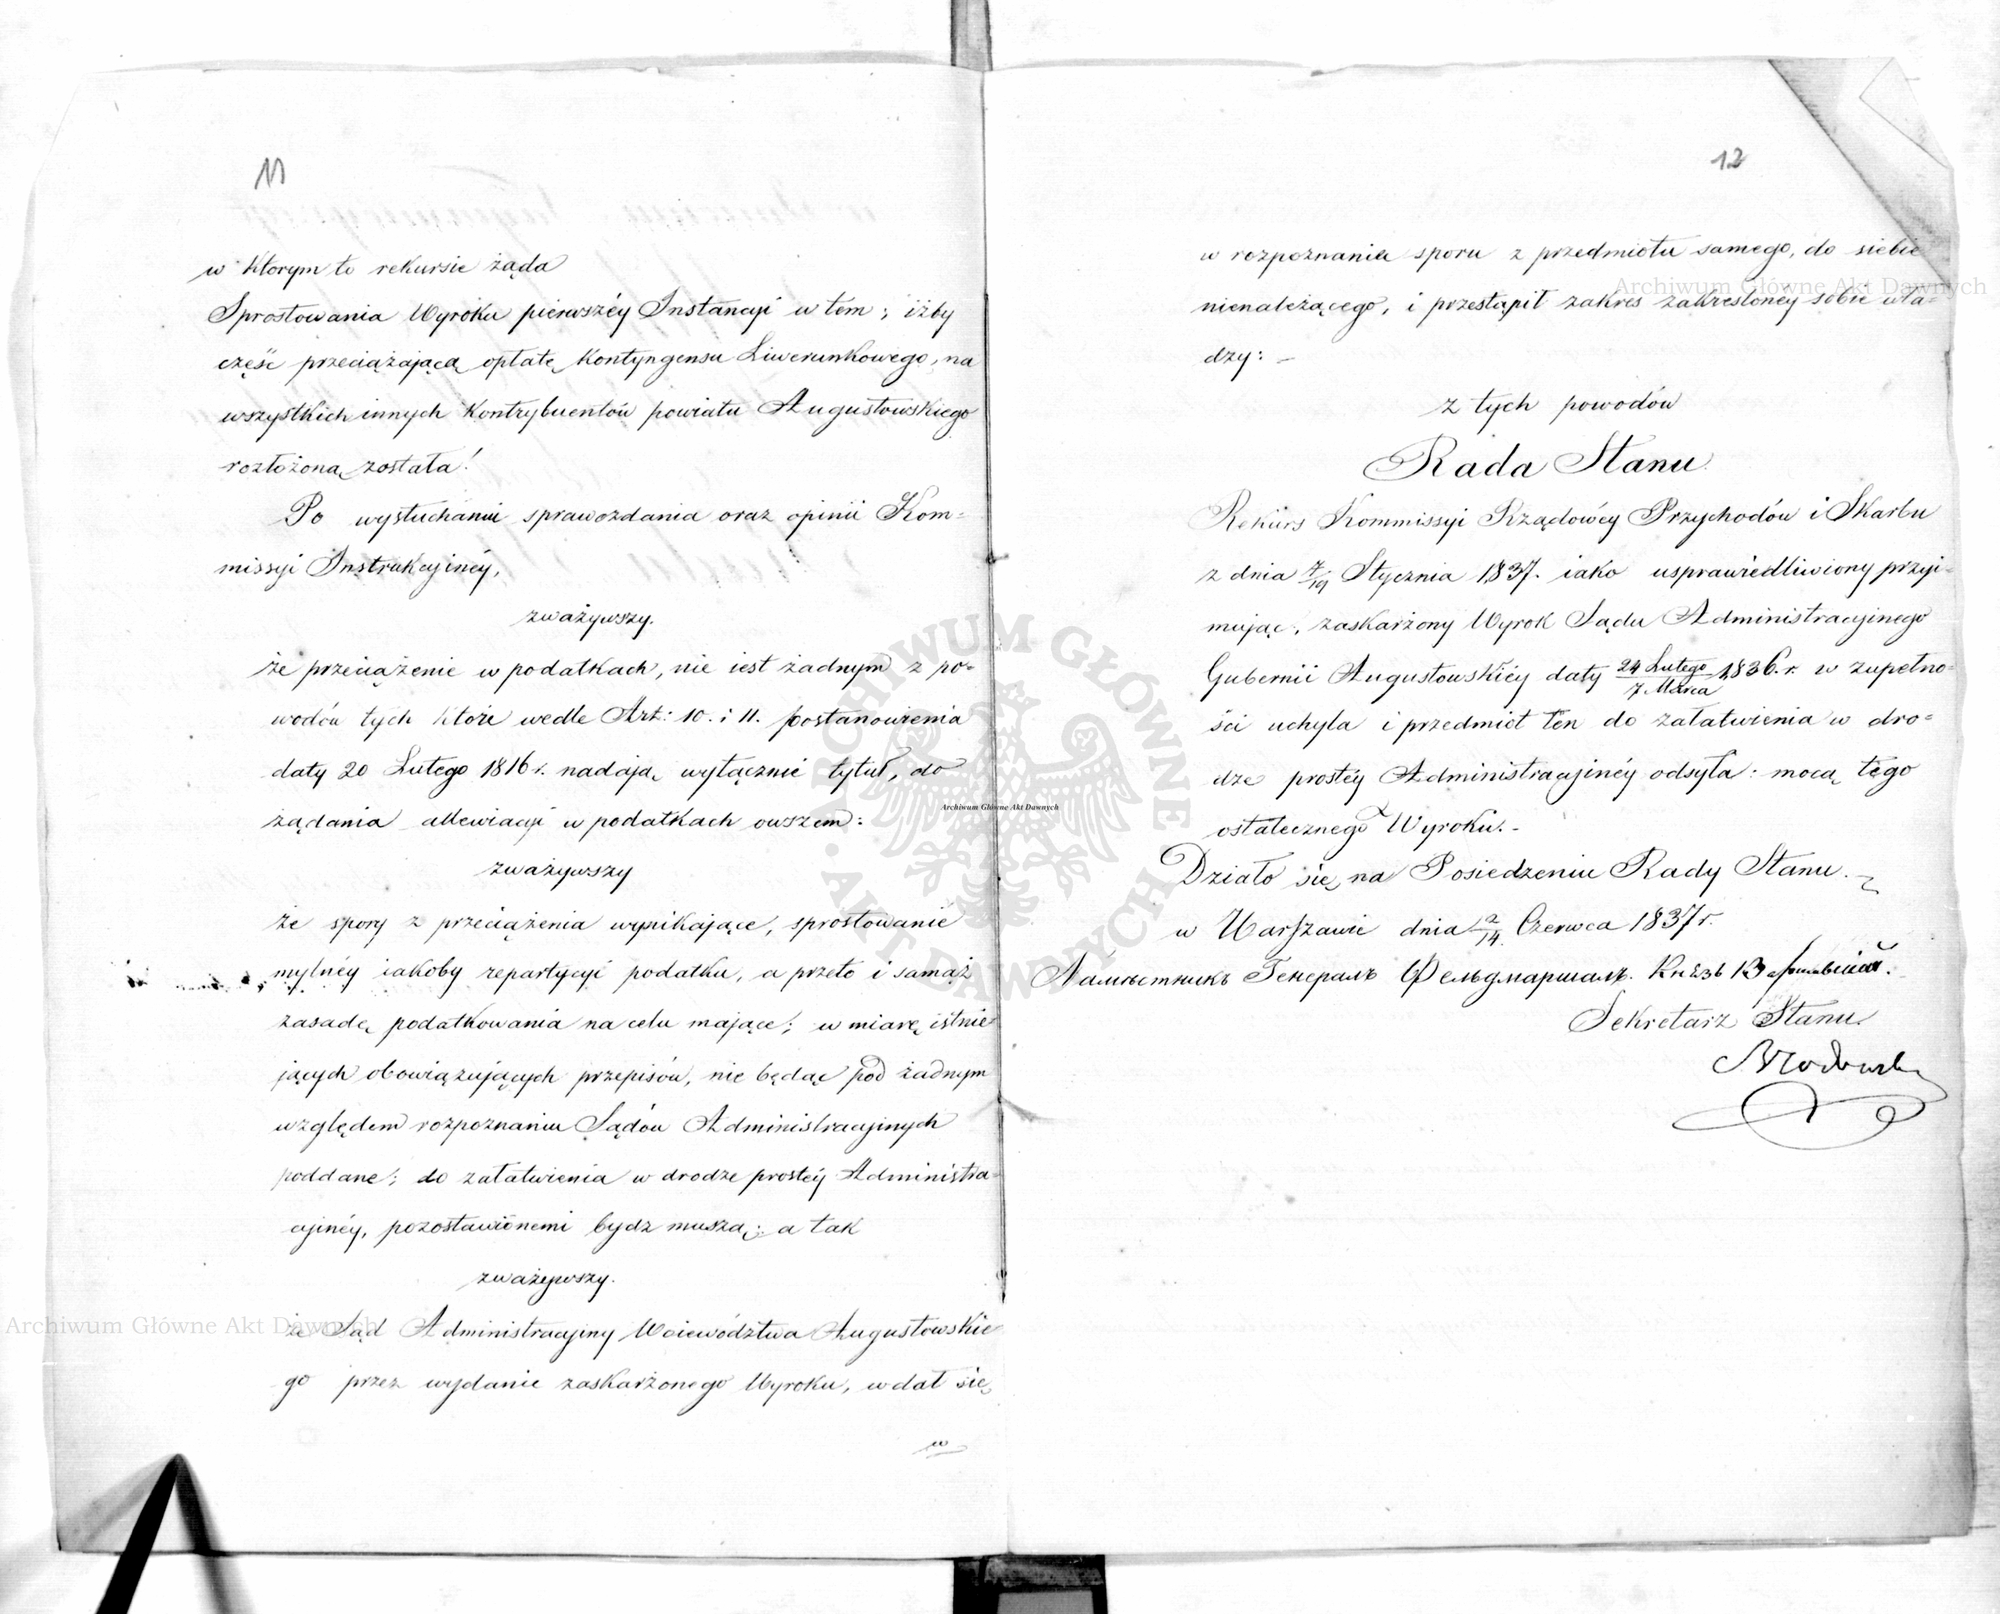 11
w ktorym to rekursie żąda
Sprostowania Wyroku pierwszéy Instancyi w tem; iżby
część przeciążającą opłatę Kontyngensu Liwerunkowego, na
wszystkich innych Kontrybuentów powiatu Augustowskiego
rozłożoną została!
Po wysłuchaniu sprawozdania oraz opinii Kom=
missyi Instrukcyinéy,
zważywszy.
że przeciążenie w podatkach, nie iest żadnym z po=
wodów tych które wedle Art: 10. i 11. postanowienia
daty 20 Lutego 1816 r. nadają wyłącznie tytuł, do
żądania allewiacyi w podatkach owszem:
zważywszy
że spory z przeciążenia wynikające, sprostowanie
mylnéy iakoby repartycyi podatku, a przeto i samąż
zasadę podatkowania na celu mające; w miarę istnie=
jących obowiązujących przepisów, nie będąc pod żadnym
względem rozpoznaniu Sądów Administracyjnych
poddane; do załatwienia w drodze prostéy Administra=
cyjinéy, pozostawionemi bydź muszą: a tak
zważywszy.
że Sąd Administracyjny Woiewództwa Augustowskie
go przez wydanie zaskarżonego Wyroku, wdał się
w
12
w rozpoznania sporu z przedmiotu samego, do siebie
nienależącego, i przestąpił zakres zakreśloney sobie wła=
dzy: –
z tych powodów
Rada Stanu
Rekurs Kommissyi Rządowéy Przychodów i Skarbu
z dnia 7/19 Stycznia 1837. iako usprawiedliwiony przyi=
mując, zaskarżony Wyrok Sądu Administracyjinego
Gubernii Augustowskiéy daty 24 Lutego/7 Marca 1836. r. w zupełno=
ści uchyla i przedmiot ten do załatwienia w dro=
dze prostéy Administracyjinéy odsyła: mocą tego
ostatecznego Wyroku. –
Działo się na Posiedzeniu Rady Stanu.
w Warszawie dnia 2/14. Czerwca 1837 r.
Намѣстникъ Генералъ Фельдмаршалъ. Князь
Sekretarz Stanu.
Archiwum Główne Akt Dawnych
Archiwum Główne Akt Dawnych
Archiwum Główne Akt Dawnych
ARCHIWUM GŁÓWNE AKT DAWNYCH